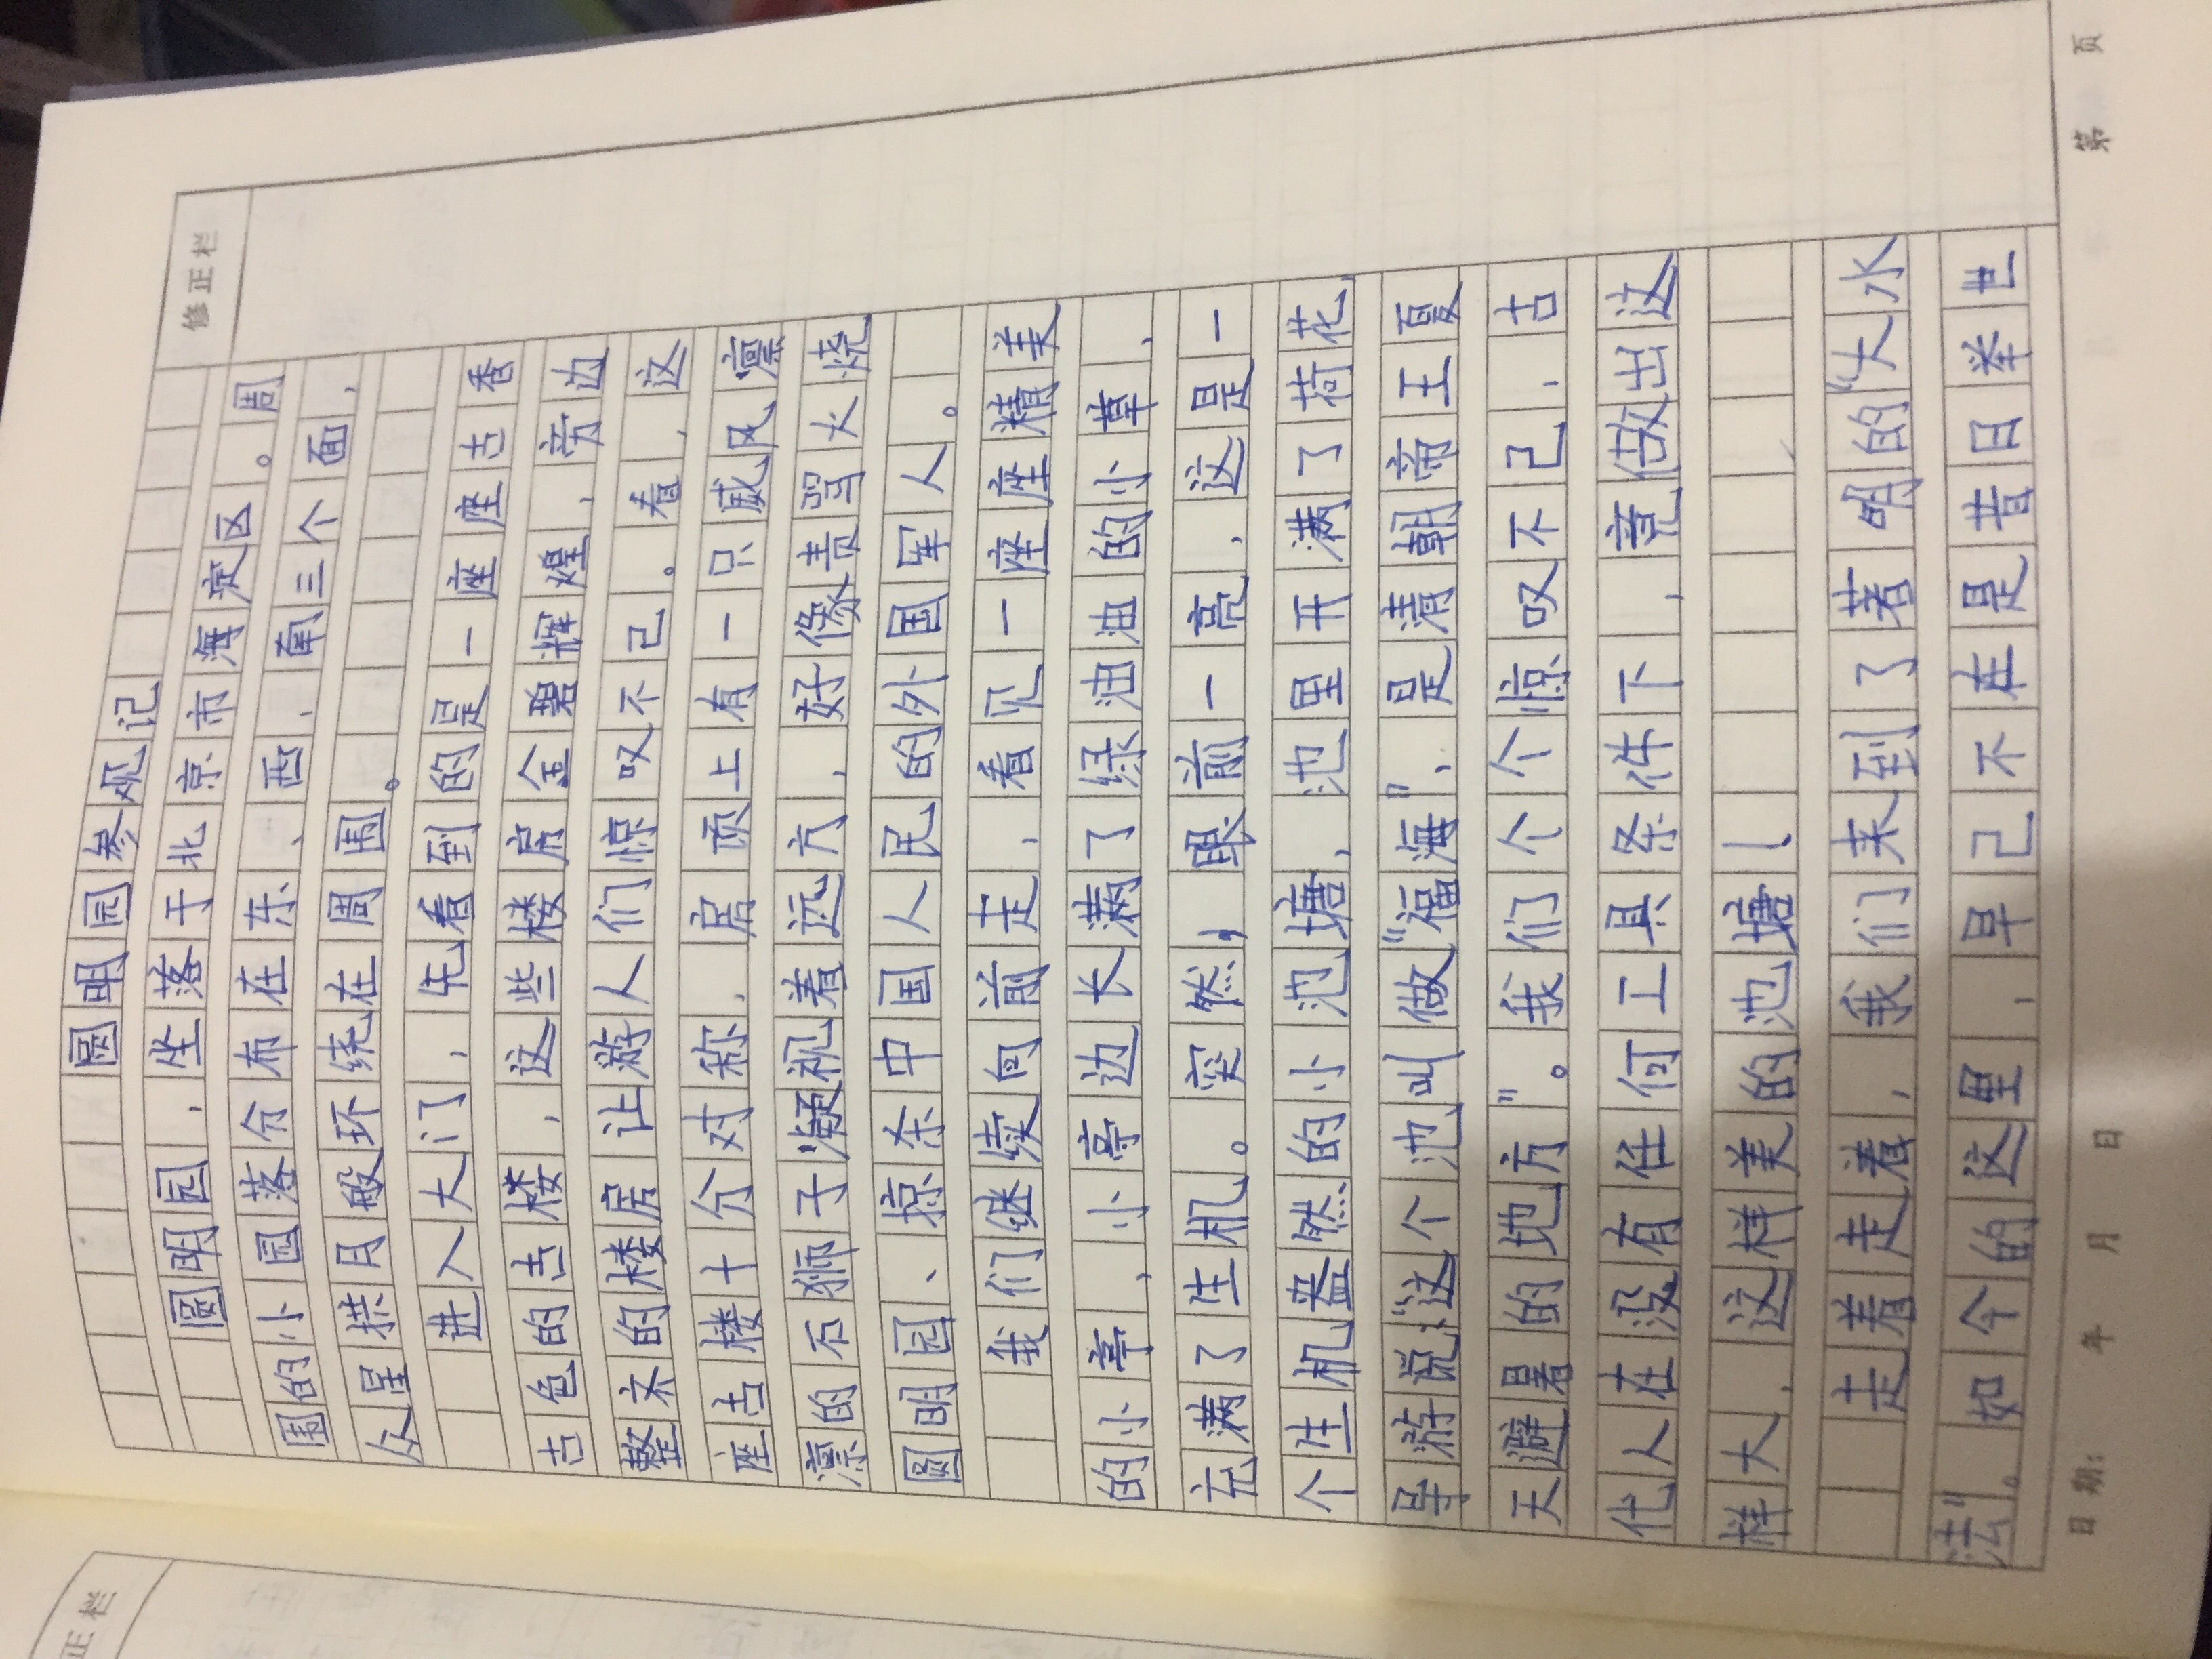 修正栏
圆明园参观记
圆明园，坐落于北京市海淀区。周
围的小园落分布在东、西、南三个面，
众星拱月般环绕在周围。
进入大门，先看到的是一座座古香
古色的古楼，这些楼房金碧辉煌，旁边
整齐的楼房让游人们惊叹不己。看，这
座古楼十分对称，房顶上有一只威风凛
凛的石狮子凝视着远方，好像责骂火烧
圆明园、掠杀中国人民的外国军人。
我们继续向前走，看见一座座精美
的小亭，小亭边长满了绿油油的小草，
充满了生机。突然，眼前一亮，这是一
个生机盎然的小池塘，池里开满了荷花，
导游说：“这个池叫做“福海”，是清朝帝王夏
天避暑的地方”。我们个个惊叹不己，古
代人在没有任何工具条件下，竟做出这
样大，这样美的池塘！
走着走着，我们来到了著明的“大水
法”。如今的这里，早己不在是昔日举世
日期： 年 月 日 第 页
正栏